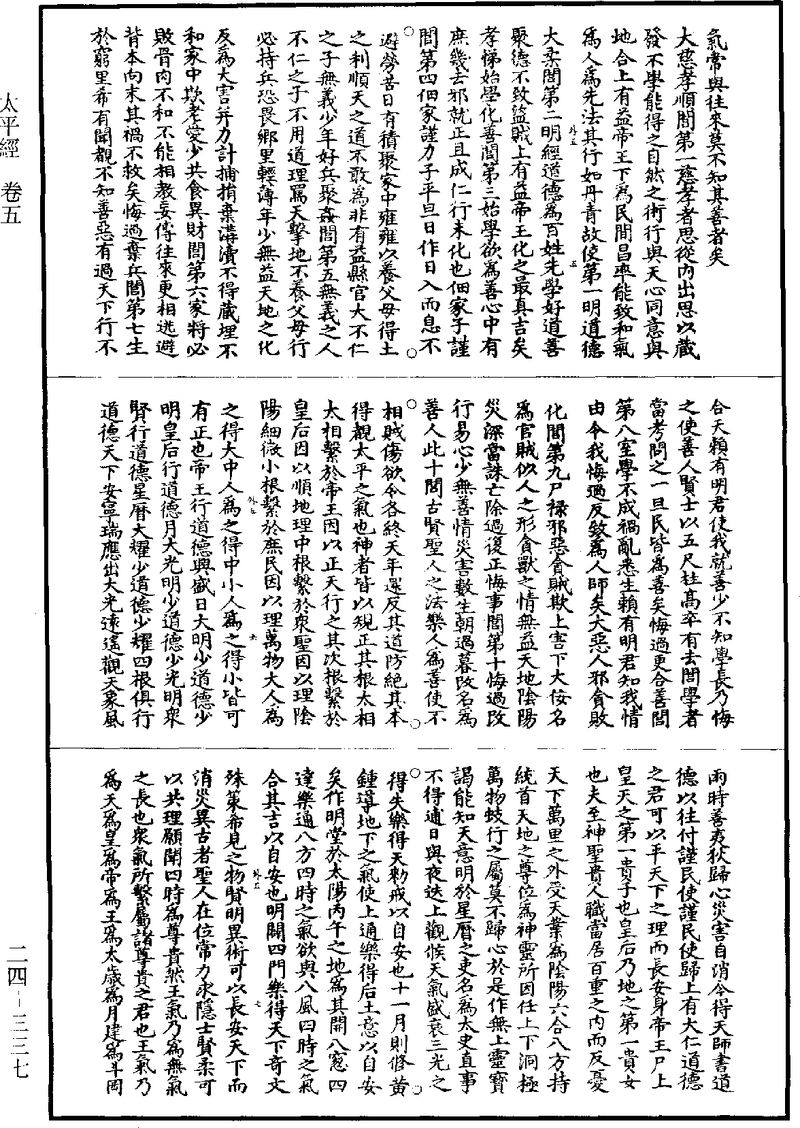 氣常與往來莫不知其善者矣
大慈孝順閭第一慈孝者思從內出思以藏
發不學能得之自然之術行與天心同意與
地合上有益帝王下為民間昌率能致和氣
為人為先法其行如丹青故使第一明道德
外五
五
大柔閭第二明經道德為百姓先學好道善
聚德不致盜賊上有益帝王化之最真吉矣
孝悌始學化善閭第三始學欲為善心中有
庶幾去邪就正且成仁行未化也佃家子謹
閭第四佃家謹力子平旦日作日入而息不
避勞苦日有積聚家中雍雍以養父母得土
之利順天之道不敢為非有益縣官大不仁
之子無義少年好兵聚姦閭第五無義之人
不仁之子不用道理罵天擊地不養父母行
必持兵恐畏鄉里輕薄年少無益天地之化
反為大害并力計捕捐棄溝瀆不得藏埋不
和家中欺老愛少共食異財閭第六家將必
敗骨肉不和不能相教妄傳往來更相逃避
背本向末其禍不救矣悔過棄兵閭第七生
於窮里希有聞覩不知善惡有過天下行不
合天賴有明君使我就善少不知學長乃悔
之使善人賢士以五尺柱高卒有去閭學者
當考問之一旦民皆為善矣悔過更合善閭
第八室學不成禍亂悉生賴有明君知我情
由今我悔過反敦為人師矣大惡人邪貪敗
化閭第九尸祿邪惡貪賊欺上害下大佞名
為官賊似人之形貪獸之情無益天地陰陽
災深當誅亡除過復正悔事閭第十悔過改
行易心少無善情災害數生朝過暮改名為
善人此十閭古賢聖人之法樂人為善使不
相賊傷欲令各終天年還反其道防絕其本
得觀太平之氣也神者皆以規正其根太相
太相繫於帝王因以正天行之其次根繫於
皇后因以順地理中根繫於衆聖因以理陰
陽細微小根繫於庶民因以理萬物大人為
外六
六
之得大中人為之得中小人為之得小皆可
有正也帝王行道德興盛日大明少道德少
明皇后行道德月大光明少道德少光明衆
賢行道德星曆大耀少道德少耀四根俱行
道德天下安寧瑞應出大光遠遙觀天象風
雨時善夷狄歸心災害自消令得天師書道
德以往付謹民使謹民使歸上有大仁道德
之君可以平天下之理而長安身帝王尸上
皇天之第一貴子也皇后乃地之第一貴女
也夫至神聖貴人職當居百重之內而反憂
天下萬里之外受天業為陰陽六合八方持
統首天地之尊位為神靈所因任上下洞極
萬物蚑行之屬莫不歸心於是作無上靈寶
謁能知天意明於星曆之吏名為太史直事
不得適日與夜迭上觀候天氣盛衰三光之
得失樂得天勑戒以自安也十一月則修黃
鍾導地下之氣使上通樂得后土意以自安
矣作明堂於太陽丙午之地為其開八窓四
達樂通八方四時之氣欲與八風四時之氣
合其吉以自安也明開四門樂得天下奇文
外五
七
殊策希見之物賢明異術可以長安天下而
消災異古者聖人在位常力求隱士賢柔可
以共理願聞四時為尊貴然王氣乃為無氣
之長也衆氣所繫屬諸尊貴之君也王氣乃
為天為皇為帝為王為太歲為月建為斗岡
太平經 卷五
二四-三三七